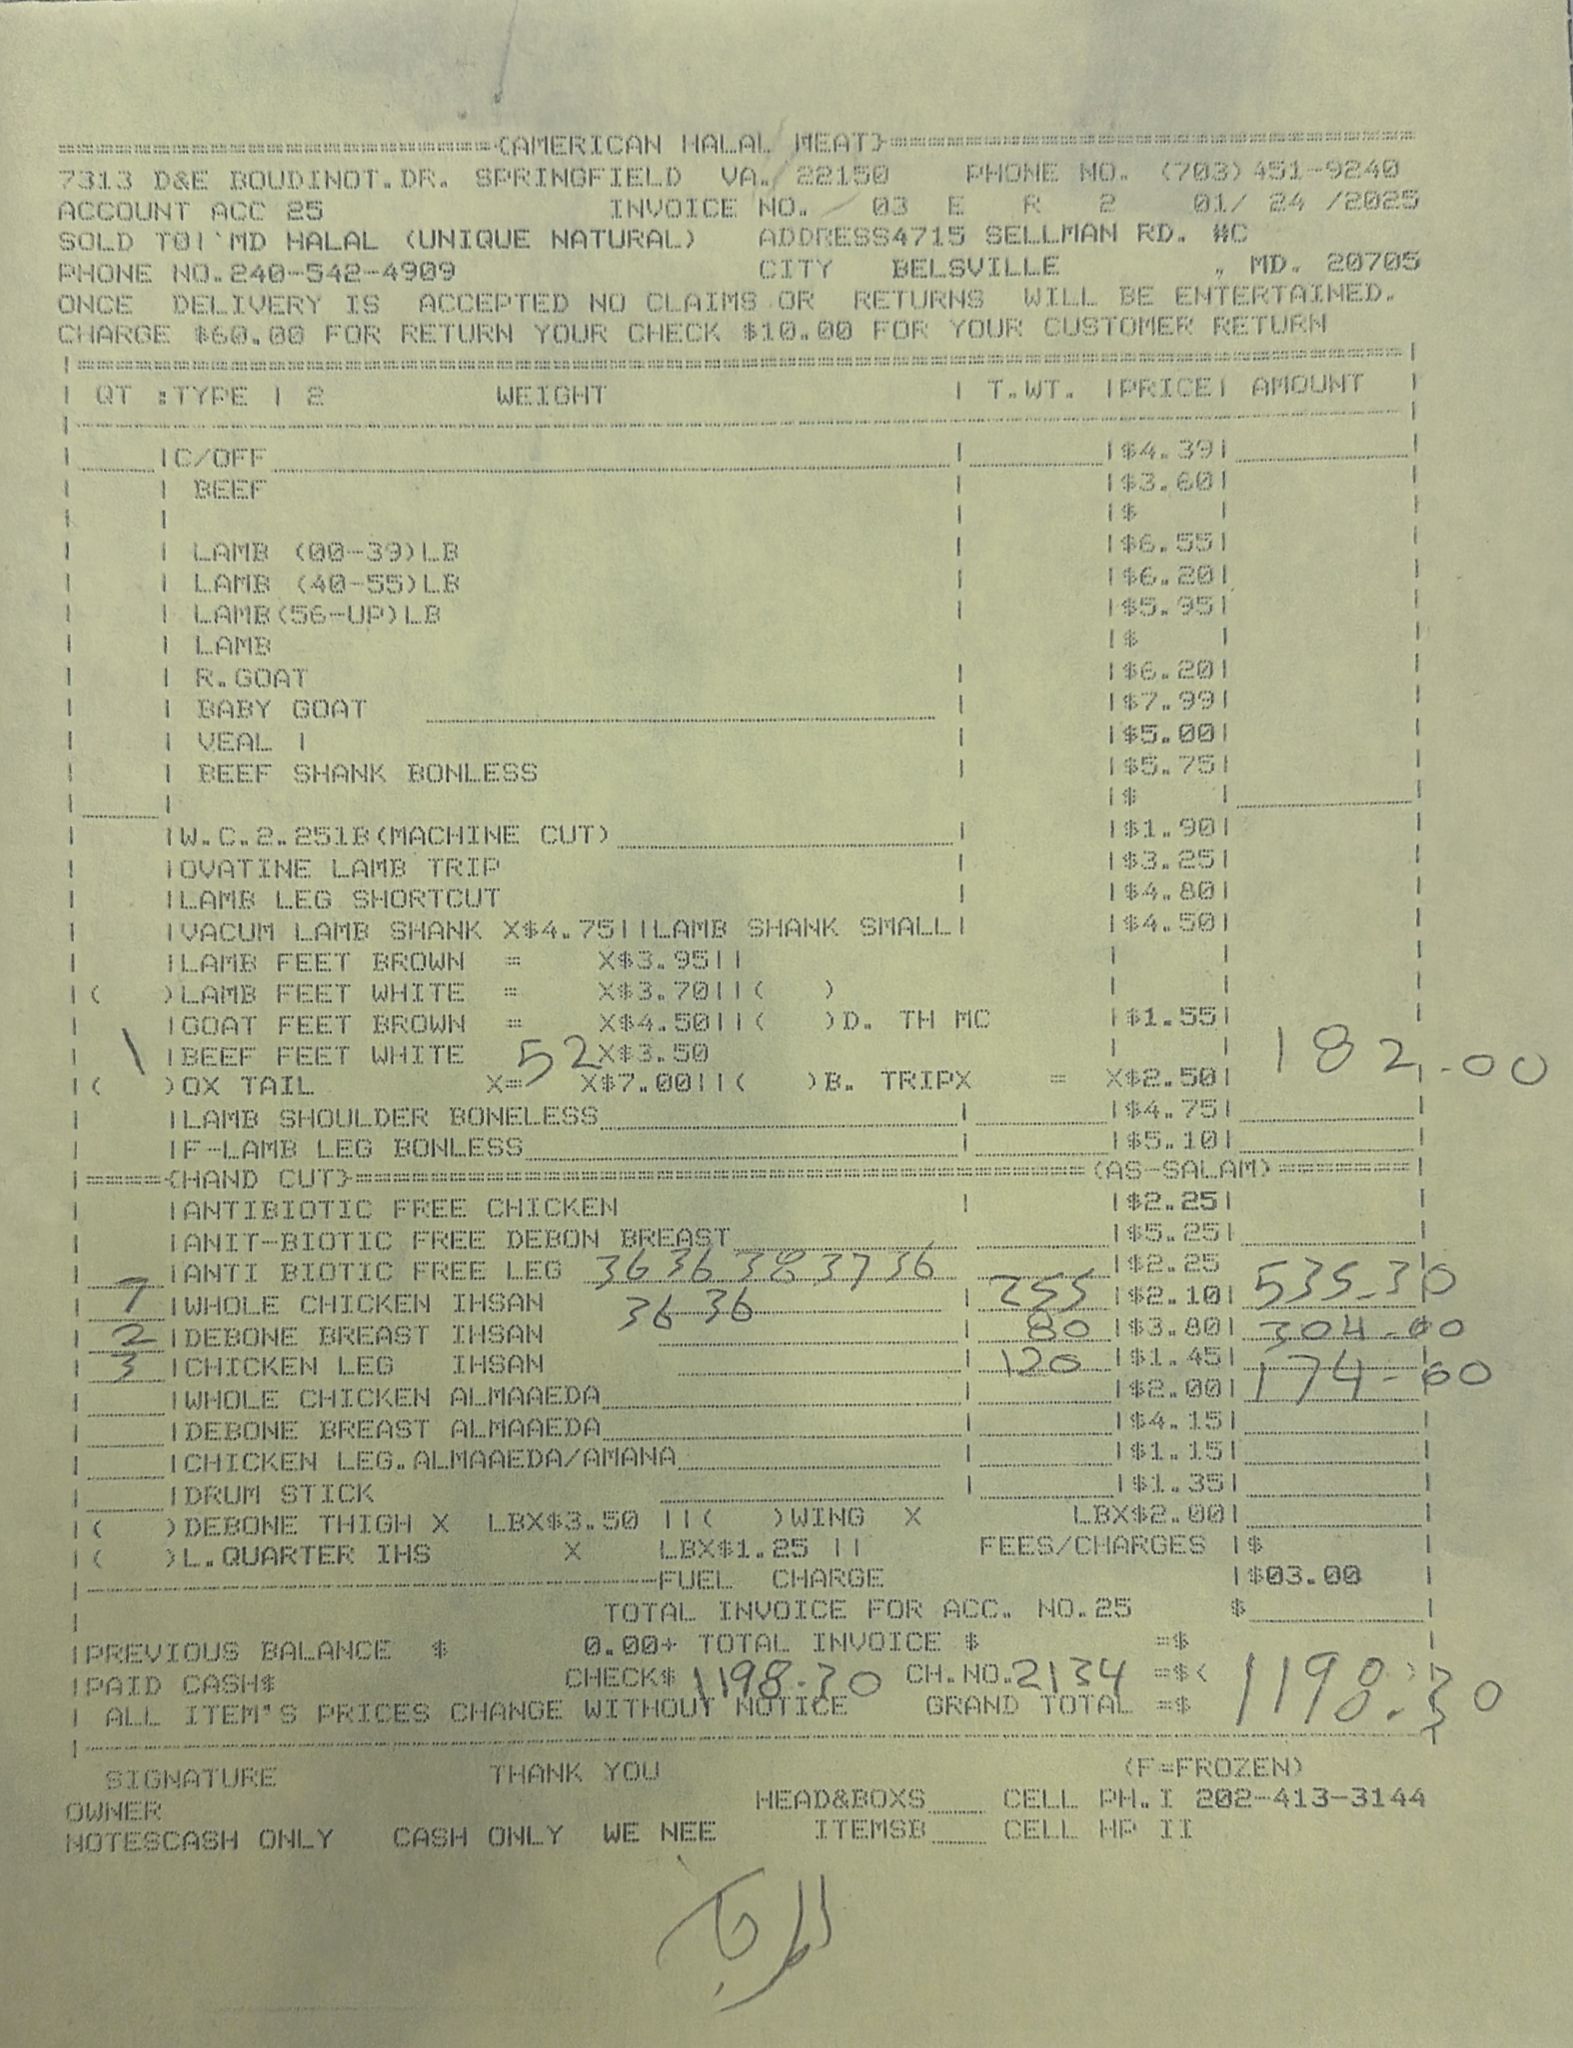 (AMERICAN HALAL MEAT)
7313 D&E BOUDINOT.DR. SPRINGFIELD VA. 22150 PHONE NO. (703)451-9240
ACCOUNT ACC 25 INVOICE NO. 03 E R 2 01/ 24 /2025
SOLD TO|`MD HALAL (UNIQUE NATURAL) ADDRESS4715 SELLMAN RD. #C
PHONE NO.240-542-4909 CITY BELSVILLE , MD. 20705
ONCE DELIVERY IS ACCEPTED NO CLAIMS OR RETURNS WILL BE ENTERTAINED.
CHARGE $60.00 FOR RETURN YOUR CHECK $10.00 FOR YOUR CUSTOMER RETURN
QT :TYPE | 2 WEIGHT | T.WT. |PRICE| AMOUNT
|C/OFF |$4.39|
| BEEF |$3.60|
|$ |
| LAMB (00-39)LB |$6.55|
| LAMB (40-55)LB |$6.20|
| LAMB(56-UP)LB |$5.95|
| LAMB |$ |
| R.GOAT |$6.20|
| BABY GOAT |$7.99|
| VEAL | |$5.00|
| BEEF SHANK BONLESS |$5.75|
|$ |
|W.C.2.25LB(MACHINE CUT) |$1.90|
|OVATINE LAMB TRIP |$3.25|
|LAMB LEG SHORTCUT |$4.80|
|VACUM LAMB SHANK X$4.75||LAMB SHANK SMALL| |$4.50|
|LAMB FEET BROWN = X$3.95||
|( )LAMB FEET WHITE = X$3.70||( )
|GOAT FEET BROWN = X$4.50||( )D. TH MC |$1.55|
1 |BEEF FEET WHITE 52 X$3.50 182.00
|( )OX TAIL X= X$7.00||( )B. TRIPX = X$2.50|
|LAMB SHOULDER BONELESS |$4.75|
|F-LAMB LEG BONLESS |$5.10|
(HAND CUT) (AS-SALAM)
|ANTIBIOTIC FREE CHICKEN |$2.25|
|ANIT-BIOTIC FREE DEBON BREAST |$5.25|
|ANTI BIOTIC FREE LEG 36 36 38 37 36 |$2.25
7 |WHOLE CHICKEN IHSAN 36 36 255 |$2.10| 535.30
2 |DEBONE BREAST IHSAN 80 |$3.80| 304.00
3 |CHICKEN LEG IHSAN 120 |$1.45| 174.00
|WHOLE CHICKEN ALMAAEDA |$2.00|
|DEBONE BREAST ALMAAEDA |$4.15|
|CHICKEN LEG.ALMAAEDA/AMANA |$1.15|
|DRUM STICK |$1.35|
|( )DEBONE THIGH X LBX$3.50 ||( )WING X LBX$2.00|
|( )L.QUARTER IHS X LBX$1.25 || FEES/CHARGES |$
FUEL CHARGE |$03.00
TOTAL INVOICE FOR ACC. NO.25 $
|PREVIOUS BALANCE $ 0.00+ TOTAL INVOICE $ =$
|PAID CASH$ CHECK$ 1198.30 CH.NO.2134 =$( )
| ALL ITEM'S PRICES CHANGE WITHOUT NOTICE GRAND TOTAL =$ 1198.30
SIGNATURE THANK YOU (F=FROZEN)
OWNER HEAD&BOXS CELL PH.I 202-413-3144
NOTESCASH ONLY CASH ONLY WE NEE ITEMSB CELL HP II